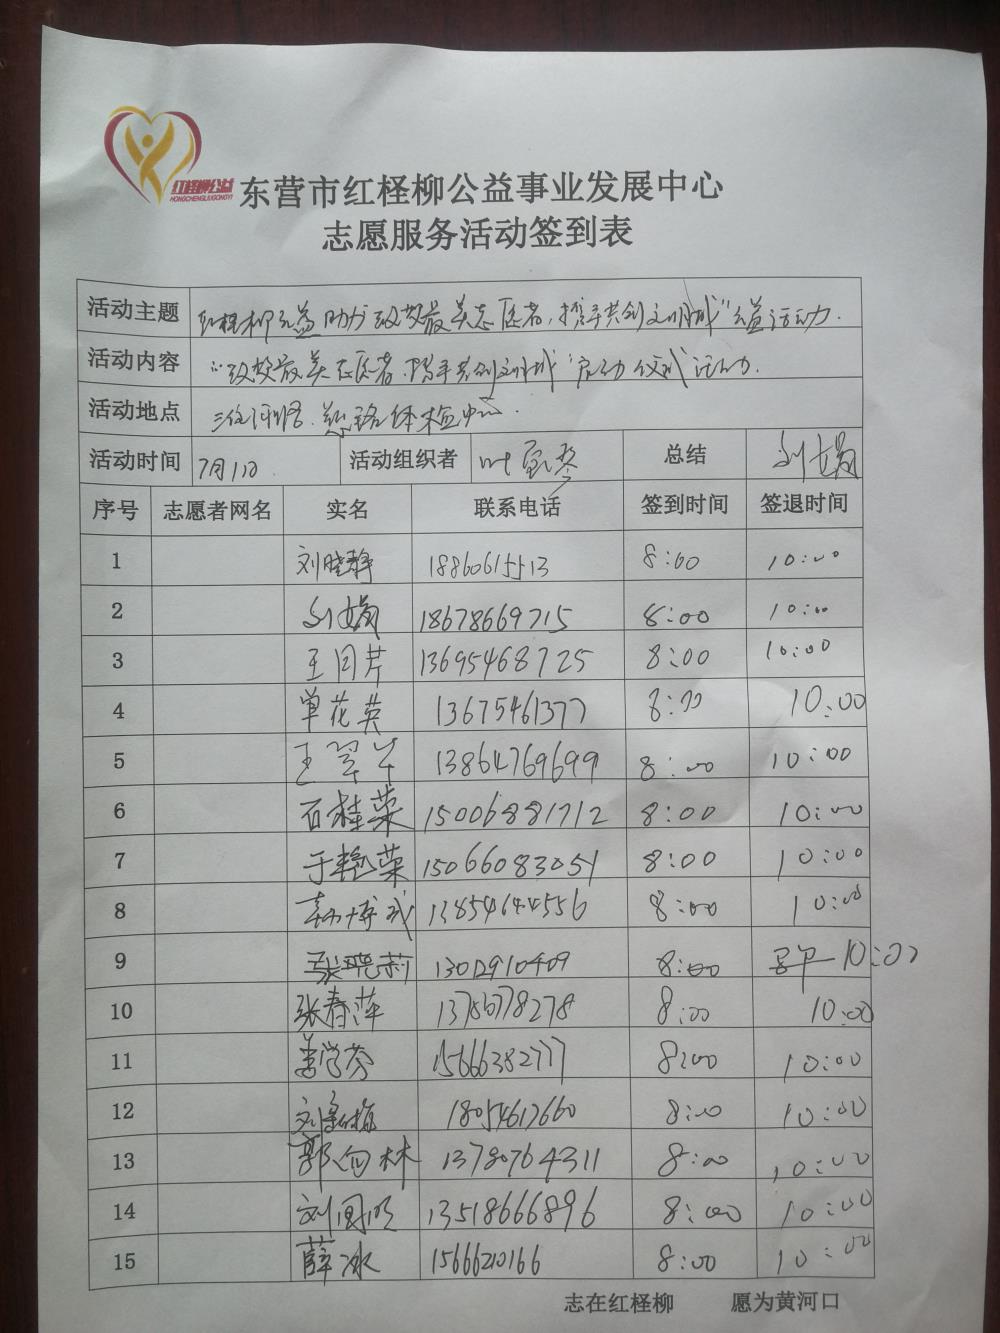 红柽柳公益
HONGCHENGLIUGONGYI
东营市红柽柳公益事业发展中心
志愿服务活动签到表
活动主题 红柽柳公益助力"致敬最美志愿者,携手共创文明城"公益活动.
活动内容 "致敬最美志愿者.携手共创文明城"启动仪式活动.
活动地点 体检中心.
活动时间 7月1日. 活动组织者 总结 刘娟
序号 志愿者网名 实名 联系电话 签到时间 签退时间
1 刘晓静 18860615513 8:00 10:00
2 刘娟 18678669715 8:00 10:00
3 王月芹 13695468725 8:00 10:00
4 单花英 13675461377 8:00 10:00
5 王翠华 13864769699 8:00 10:00
6 石桂荣 15006881712 8:00 10:00
7 于艳荣 15066083051 8:00 10:00
8 13854644556 8:00 10:00
9 张晓莉 13012910409 8:00 10:00
10 张春萍 8:00 10:00
11 姜学芬 15666382777 8:00 10:00
12 刘新梅 18054617660 8:00 10:00
13 郭向林 13780764311 8:00 10:00
14 刘国明 13518666896 8:00 10:00
15 薛冰 15666210166 8:00 10:00
志在红柽柳 愿为黄河口